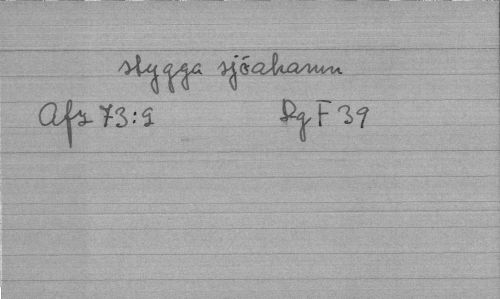 stygga sjöakarun
Afz 73:2 Rg F 39